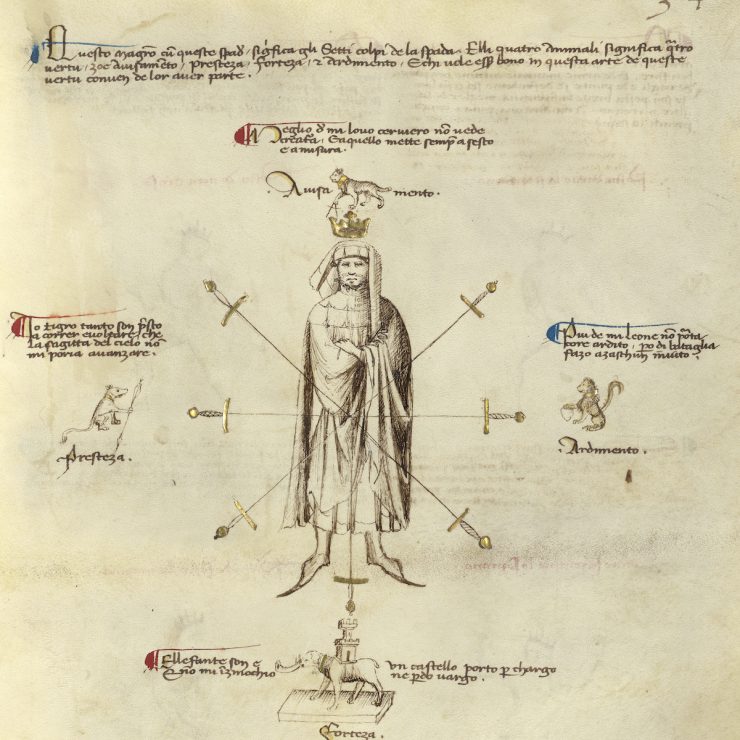 Questo magro cū queste spade, significa gli Setti colpi de la spada. Elli quatro animali significa q̄tro
vertu, zoe avisamēto, presteza, Forteza, & Ardimento, E chi vole ess̄ bono in questa arte de queste
vertu conven de lor aver parte.
Meglio d̄ mi lovo cerviero nō vede
creat̄a, E aquello mette semp̄ a sesto
e a misura.
Avisa mento.
Io tigro tanto son p̄sto
a correr e voltare, che
la sagitta del cielo nō
mi poria avanzare.
Presteza.
Piu de mi leone nō p̄ta
core ardito, po di bataglia
fazo a zaschun invito.
Ardimento.
Ellefante son e
nō mi īzenochio
un castello porto p̄ chargo
ne p̄do vargo.
Forteza.